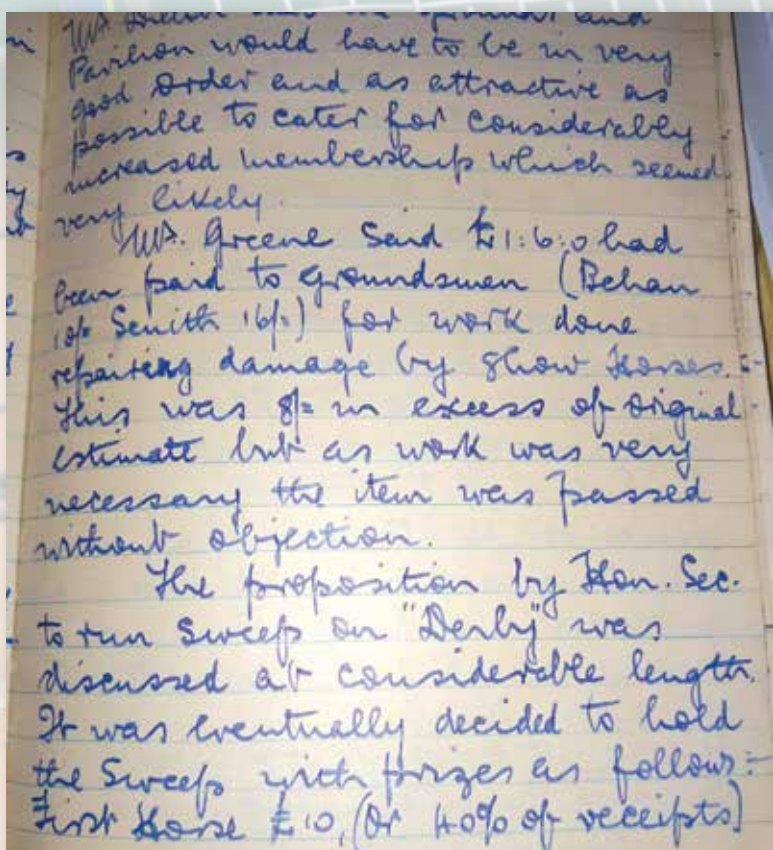 Mr. said the grounds and
Pavilion would have to be in very
good order and as attractive as
possible to cater for considerably
increased membership which seemed
very likely.
Mr. Greene said £1:6:0 had
been paid to groundsmen (Behan
10/= Smith 16/=) for work done
repairing damage by show Horses.
This was 8/= in excess of original
estimate but as work was very
necessary the item was passed
without objection.
The proposition by Hon. Sec.
to run Sweep on "Derby" was
discussed at considerable length.
It was eventually decided to hold
the Sweep with prizes as follows:-
First Horse £10, (or 40% of receipts)